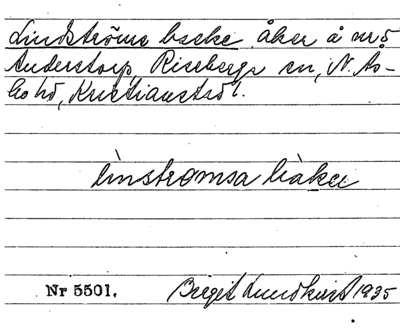 Lindströms backe, åker å nr 5
Anderstorp, Riseberga sn, N. Ås-
bo hd, Kristianstads l.
linstromsa
Nr 5501. Birgit Lundkvist 1935